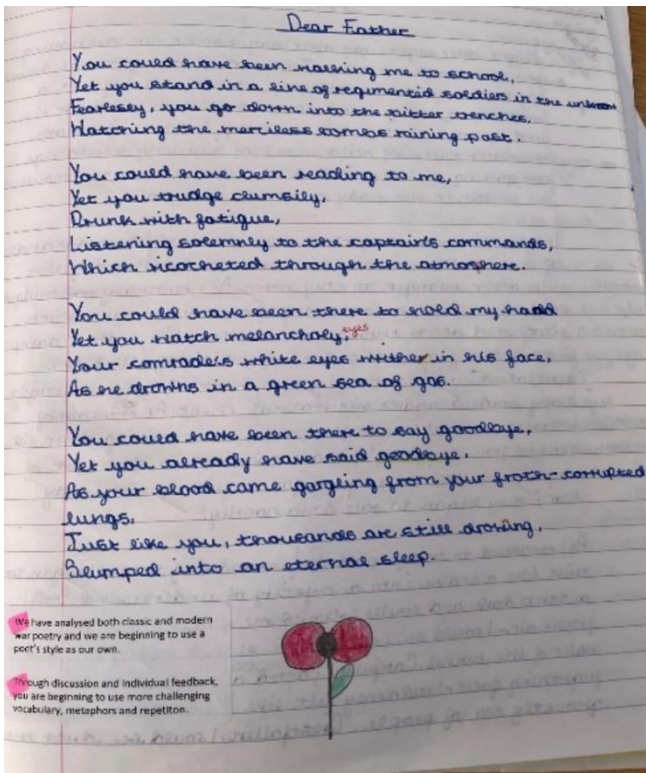 Dear Father
You could have been walking me to school,
Yet you stand in a line of regimented soldiers in the unknown
Fearlessy, you go down into the bitter trenches,
Watching the merciless bombs raining past.
You could have been reading to me,
Yet you trudge clumsily,
Drunk with fatigue,
Listening solemnly to the captain's commands,
Which ricocheted through the atmosphere.
You could have been there to hold my hand
Yet you watch melancholy, eyes
Your comrade's white eyes writher in his face,
As he drowns in a green sea of gas.
You could have been there to say goodbye,
Yet you already have said goodbye.
As your blood came gargling from your froth-corrupted
lungs,
Just like you, thousands are still drowing,
Slumped into an eternal sleep.
We have analysed both classic and modern
war poetry and we are beginning to use a
poet's style as our own.
Through discussion and individual feedback,
you are beginning to use more challenging
vocabulary, metaphors and repetiton.